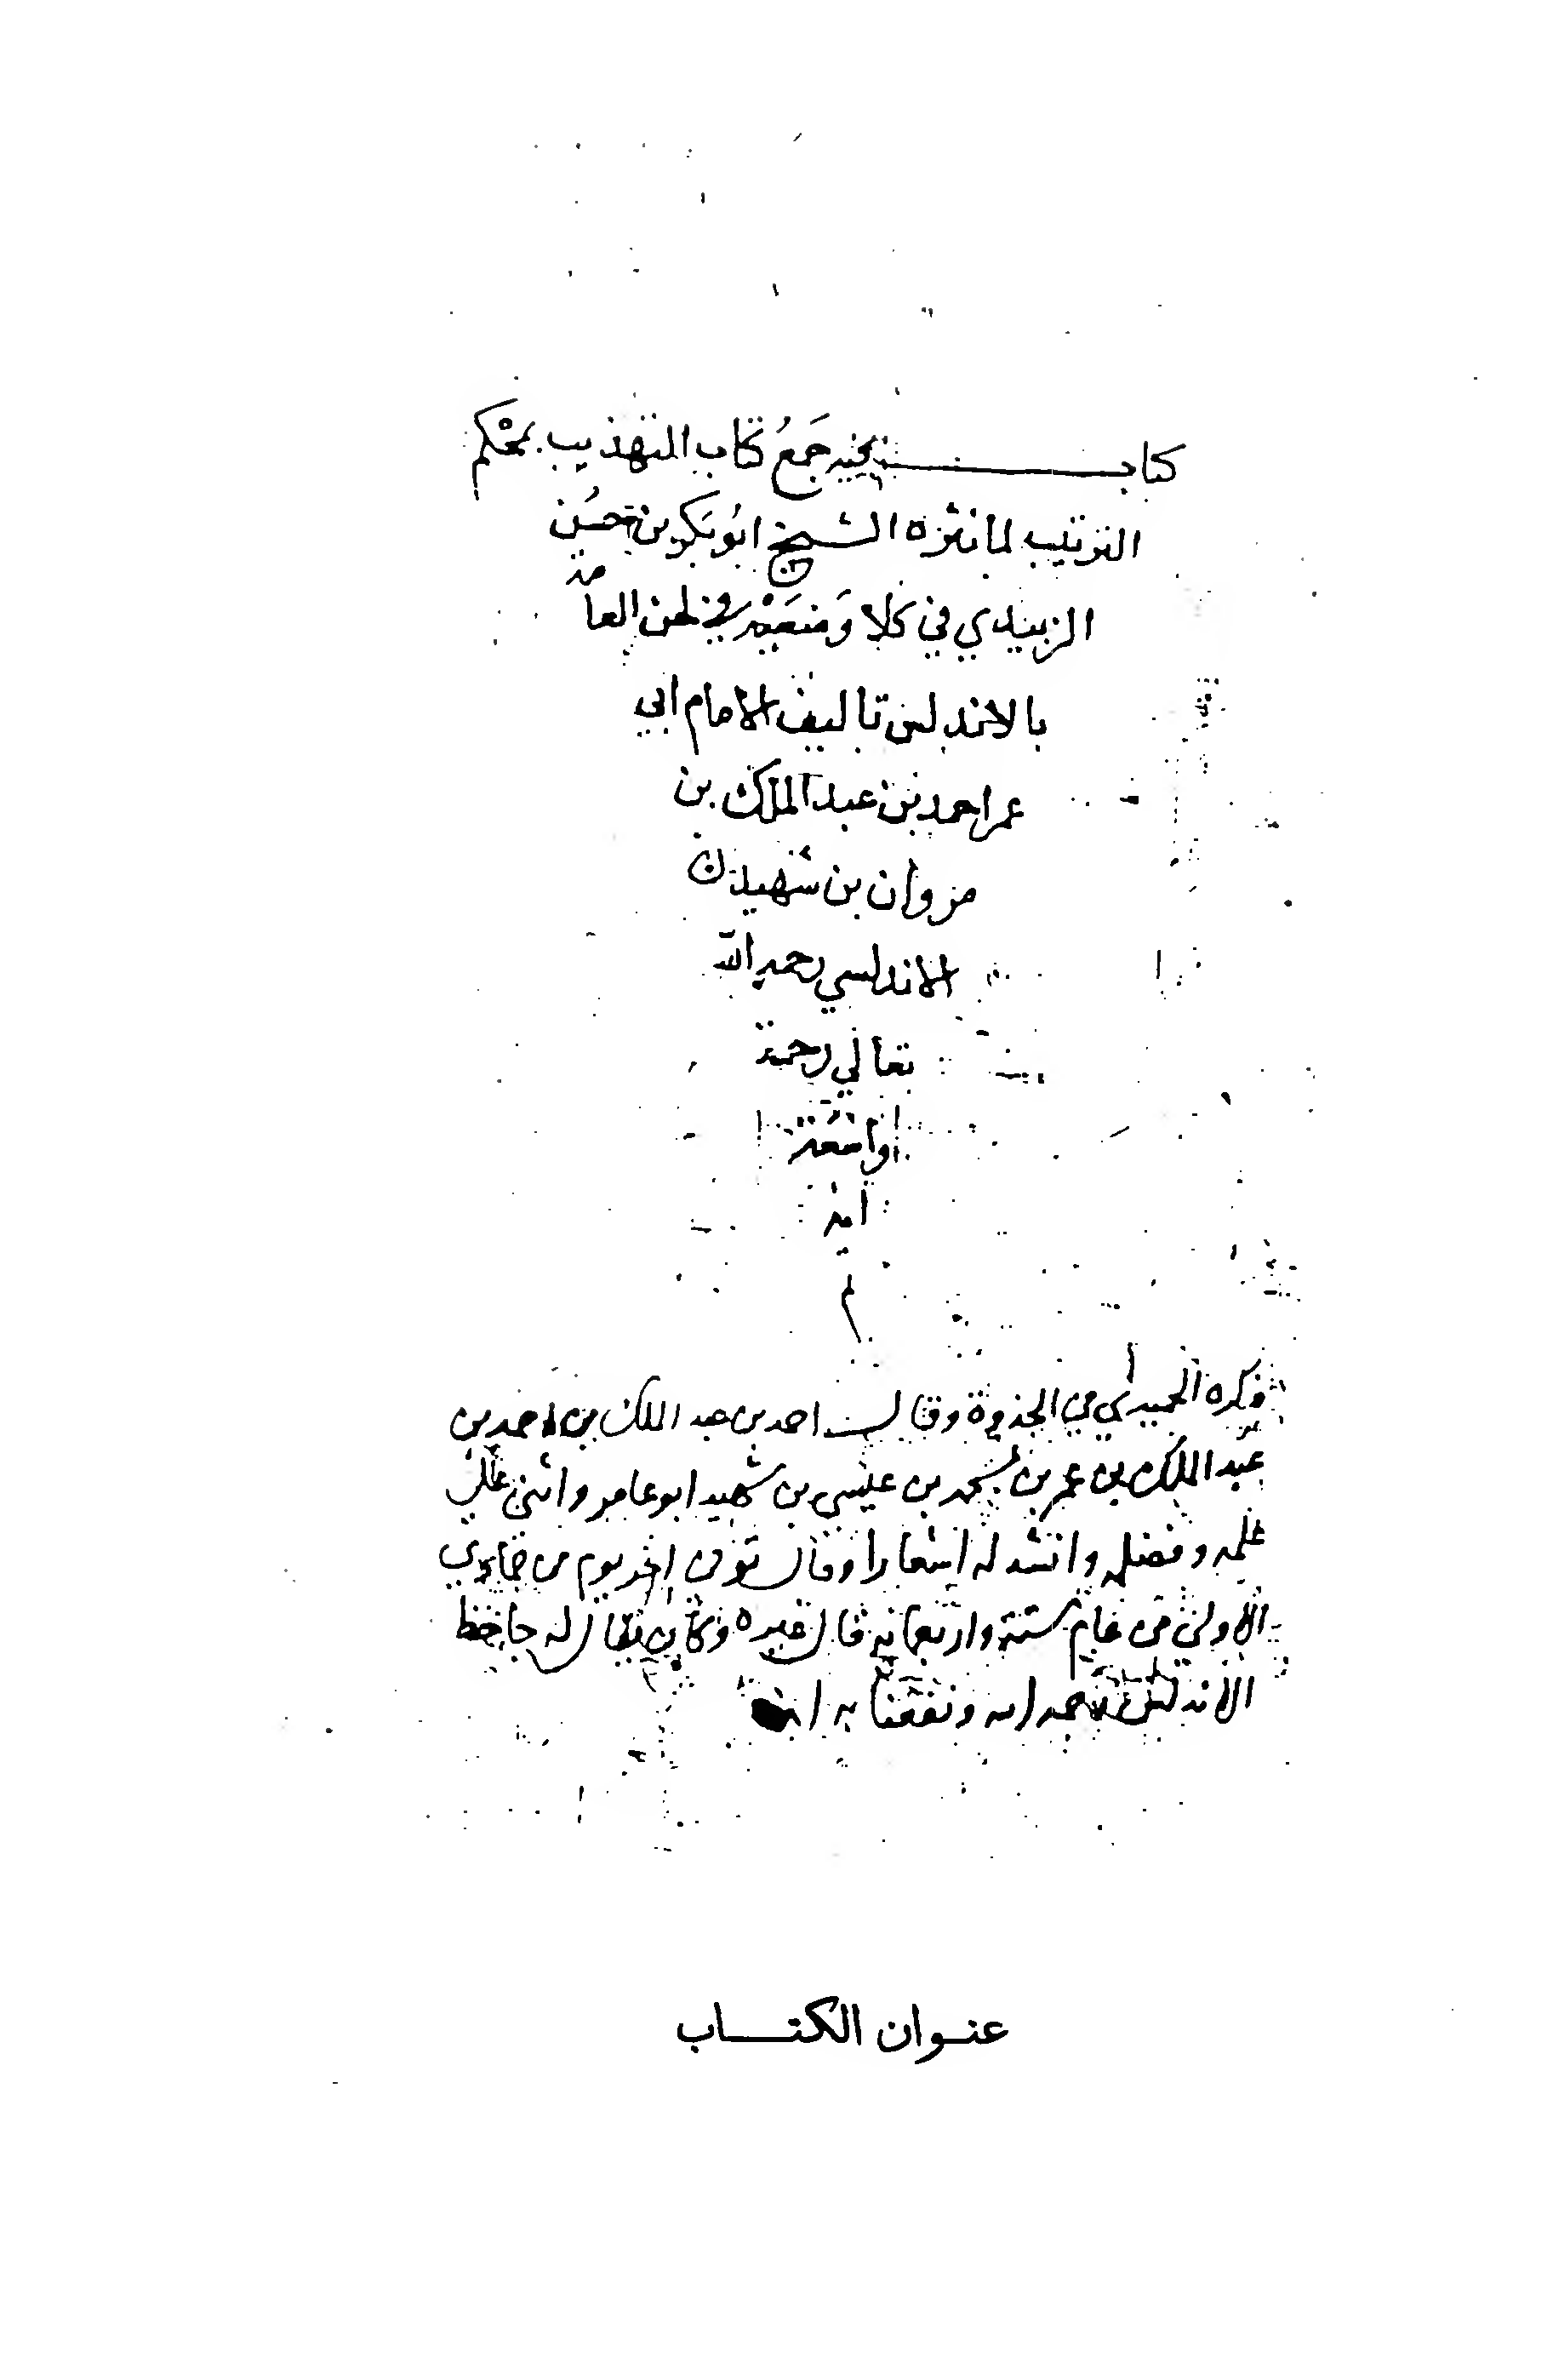 كتاب فيه جَمعُ كتاب التهذيب بمحْكم
الترتيب لما نثره الشيخ ابُو بَكر بن حسُن
الزبيدي في كلا وَضعَيْه في لحن العامة
بالاندلس تاليف الامام ابي
عمر احمد بن عبد الملك بن
مروان بن شهيد
الاندلسي رحمه الله
تعالي رحمة
واسعَة
امين
م
ذكره الحميدي في الجذوة وقال احمد بن عبد الملك بن احمد بن
عبد الملك بن عمر بن محمد بن عيسى بن شهيد ابو عامر واثنى على
علمه وفضله وانشد له اشعارا وقال توفي اخر يوم من جمادي
الاولى من عام ستة واربعمايه قال غيره وكان يقال له جاحظ
الاندلس رحمه الله ونفعنا به امين
عنوان الكتاب